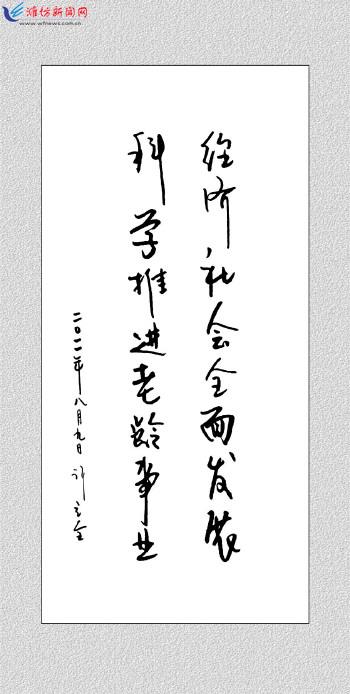 潍坊新闻网
www.wfnews.com.cn
经济、社会全面发展
科学推进老龄事业
二〇一一年八月九日 许立全